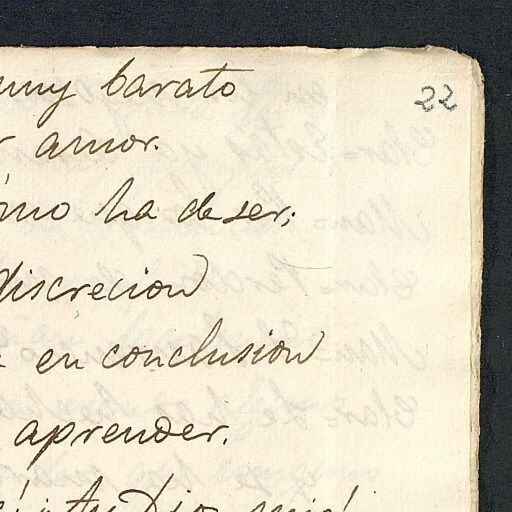 muy barato
22
r amor.
ómo ha de ser;
discrecion
en conclusion
aprender.